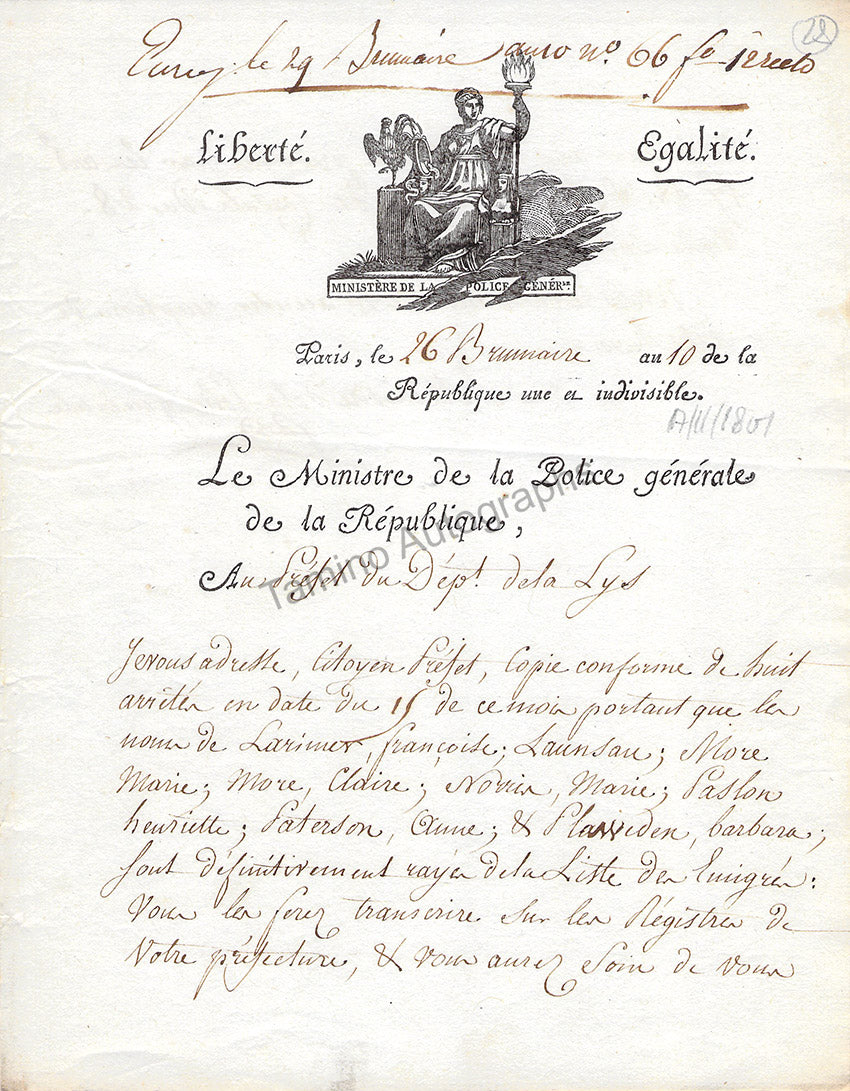 28
Enreg. le 29 Brumaire an 10 nº 66 fº 12 recto
Liberté. Egalité.
MINISTÈRE DE LA POLICE GÉNÉR.LE
Paris, le 26 Brumaire an 10 de la
République une et indivisible.
A/11/1801
Le Ministre de la Police générale
de la République,
Au Préfet du Dépt. de la Lys
Tamino Autographs
Je vous adresse, Citoyen Préfet, Copie conforme de huit
arrêtés en date du 15 de ce mois portant que les
noms de Larimer, françoise; Launsau; More
Marie; More, Claire; Norris, Marie; Paslon
henriette; Paterson, Anne; & Plawden, barbara;
sont définitivement rayés de la Liste des Emigrés:
Vous les ferez transcrire sur les Régistres de
Votre préfecture, & vous aurez Soin de vous